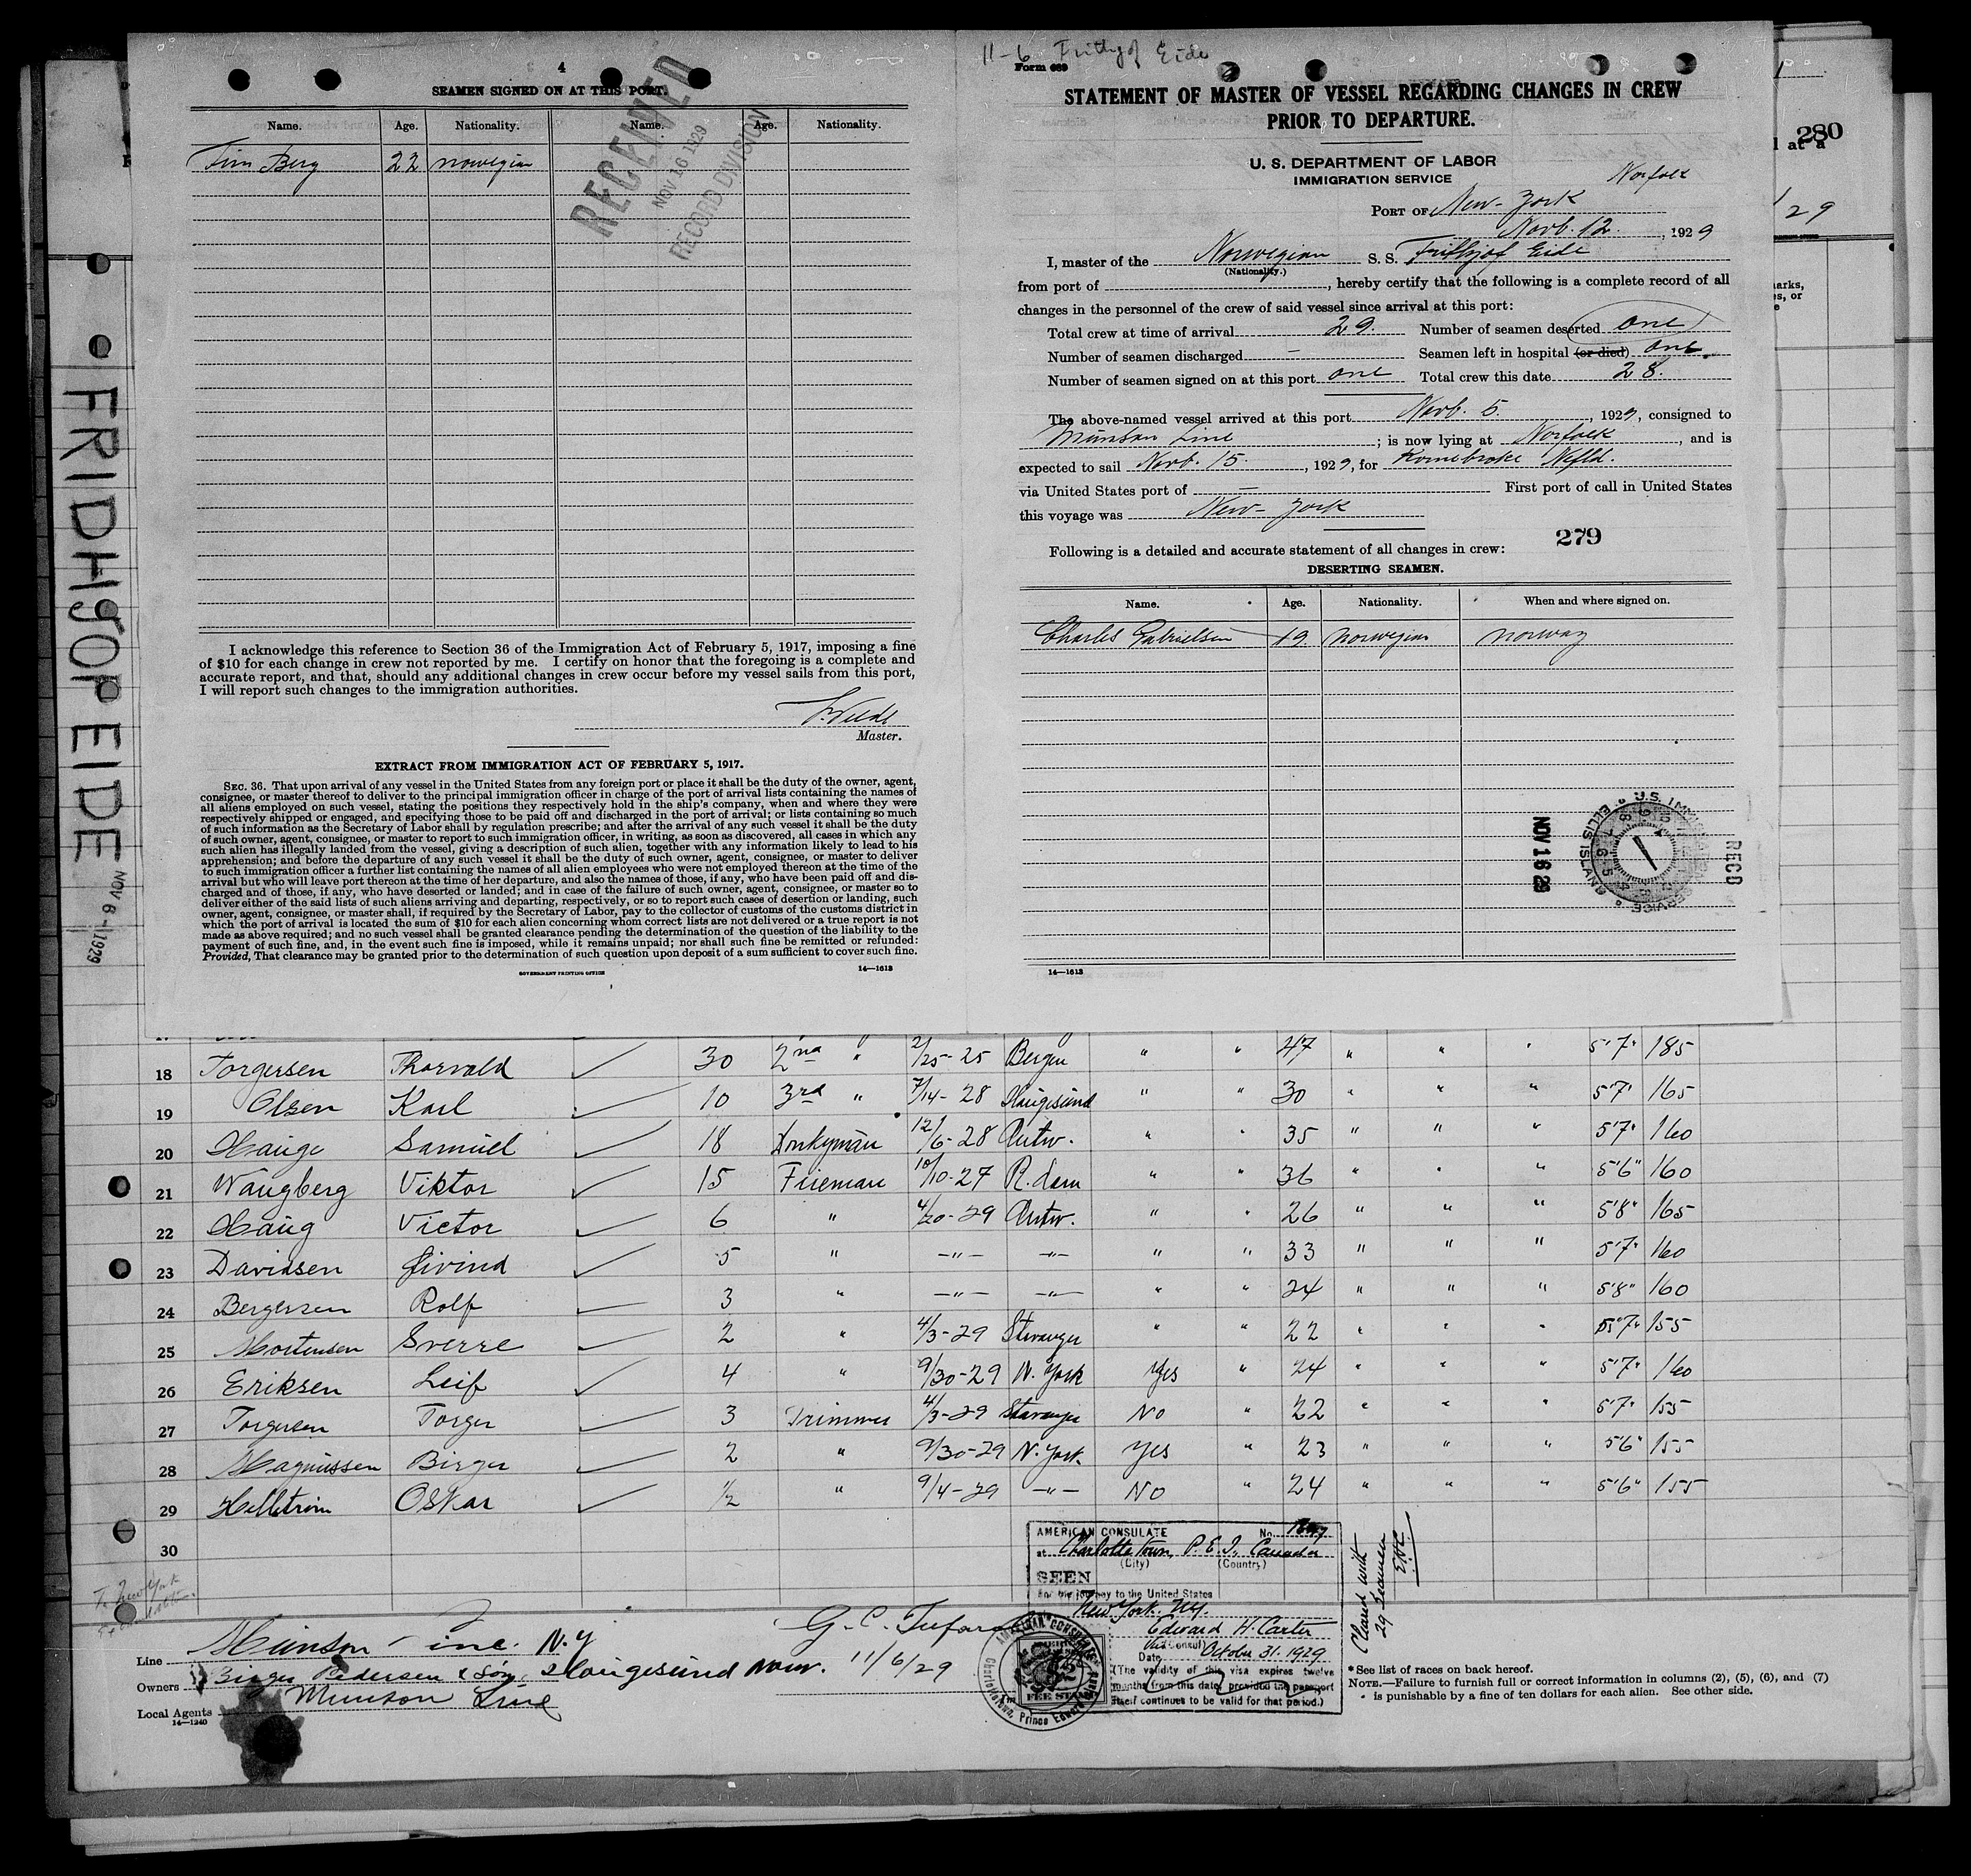 4
SEAMEN SIGNED ON AT THIS PORT.
Name. Age. Nationality. Name. Age. Nationality.
Finn Berg 22 norwegian
RECEIVED
NOV 16 1929
RECORD DIVISION
I acknowledge this reference to Section 36 of the Immigration Act of February 5, 1917, imposing a fine
of $10 for each change in crew not reported by me. I certify on honor that the foregoing is a complete and
accurate report, and that, should any additional changes in crew occur before my vessel sails from this port,
I will report such changes to the immigration authorities.
Master.
EXTRACT FROM IMMIGRATION ACT OF FEBRUARY 5, 1917.
SEC. 36. That upon arrival of any vessel in the United States from any foreign port or place it shall be the duty of the owner, agent,
consignee, or master thereof to deliver to the principal immigration officer in charge of the port of arrival lists containing the names of
all aliens employed on such vessel, stating the positions they respectively hold in the ship's company, when and where they were
respectively shipped or engaged, and specifying those to be paid off and discharged in the port of arrival; or lists containing so much
of such information as the Secretary of Labor shall by regulation prescribe; and after the arrival of any such vessel it shall be the duty
of such owner, agent, consignee, or master to report to such immigration officer, in writing, as soon as discovered, all cases in which any
such alien has illegally landed from the vessel, giving a description of such alien, together with any information likely to lead to his
apprehension; and before the departure of any such vessel it shall be the duty of such owner, agent, consignee, or master to deliver
to such immigration officer a further list containing the names of all alien employees who were not employed thereon at the time of the
arrival but who will leave port thereon at the time of her departure, and also the names of those, if any, who have been paid off and dis-
charged and of those, if any, who have deserted or landed; and in case of the failure of such owner, agent, consignee, or master so to
deliver either of the said lists of such aliens arriving and departing, respectively, or so to report such cases of desertion or landing, such
owner, agent, consignee, or master shall, if required by the Secretary of Labor, pay to the collector of customs of the customs district in
which the port of arrival is located the sum of $10 for each alien concerning whom correct lists are not delivered or a true report is not
made as above required; and no such vessel shall be granted clearance pending the determination of the question of the liability to the
payment of such fine, and, in the event such fine is imposed, while it remains unpaid; nor shall such fine be remitted or refunded:
Provided, That clearance may be granted prior to the determination of such question upon deposit of a sum sufficient to cover such fine.
GOVERNMENT PRINTING OFFICE 14—1613
11-6 Frithjof Eide
Form 689
STATEMENT OF MASTER OF VESSEL REGARDING CHANGES IN CREW
PRIOR TO DEPARTURE.
U. S. DEPARTMENT OF LABOR
IMMIGRATION SERVICE
Norfolk
PORT OF New-York
Novb. 12., 1929
I, master of the Norwegian S. S. Frithjof Eide
(Nationality.)
from port of , hereby certify that the following is a complete record of all
changes in the personnel of the crew of said vessel since arrival at this port:
Total crew at time of arrival 29. Number of seamen deserted one
Number of seamen discharged – Seamen left in hospital (or died) one.
Number of seamen signed on at this port one Total crew this date 28.
The above-named vessel arrived at this port Novb. 5., 1929, consigned to
Munson Line; is now lying at Norfolk, and is
expected to sail Novb. 15., 1929, for Nfld.
via United States port of — First port of call in United States
this voyage was New-York
279
Following is a detailed and accurate statement of all changes in crew:
DESERTING SEAMEN.
Name. Age. Nationality. When and where signed on.
Charles Gabrielsen 19 norwegian norway
NOV 16 29
U.S. IMMIGRATION SERVICE ELLIS ISLAND
RECD
14—1613
280
FRIDHJOF EIDE
NOV 6 - 1929
18 Torgersen Thorvald 30 2nd " 2/25-25 Bergen " " 47 " " " 5'7" 185
19 Olsen Karl 10 3rd " 7/14-28 Haugesund " " 30 " " " 5'7" 165
20 Hauge Samuel 18 Donkyman 12/6-28 Antw. " " 35 " " " 5'7" 160
21 Waugberg Viktor 15 Fireman 10/10-27 R.dam " " 36 " " " 5'6" 160
22 Haug Victor 6 " 4/20-29 Antw. " " 26 " " " 5'8" 165
23 Davidsen Øivind 5 " -"- -"- " " 33 " " " 5'7" 160
24 Bergersen Rolf 3 " -"- -"- " " 24 " " " 5'8" 160
25 Mortensen Sverre 2 " 4/3-29 Stavanger " " 22 " " " 5'7" 155
26 Eriksen Leif 4 " 9/30-29 N. York Yes " 24 " " " 5'7" 160
27 Torgersen Torger 3 Trimmer 4/3-29 Stavanger No " 22 " " " 5'7" 155
28 Magnussen Birger 2 " 9/30-29 N. York. Yes " 23 " " " 5'6" 155
29 Hellstrøm Oskar 1/2 " 9/4-29 -"- No " 24 " " " 5'6" 155
30
AMERICAN CONSULATE No.
at Charlottetown, P.E.I., Canada
(City) (Country)
SEEN
For the journey to the United States
New York. N.Y.
Edward H. Carter
Vice Consul
Date October 31. 1929
(The validity of this visa expires twelve
months from this date, provided the passport
itself continues to be valid for that period.)
AMERICAN CONSULAR
FEE STAMP
Charlottetown, Prince Edward
Cleared with
29 Seamen
Line Munson - inc. N.Y
11/6/29
Owners Birger Pedersen & Søn, Haugesund Norw.
Local Agents Munson Line
14—1240
* See list of races on back hereof.
NOTE.—Failure to furnish full or correct information in columns (2), (5), (6), and (7)
is punishable by a fine of ten dollars for each alien. See other side.